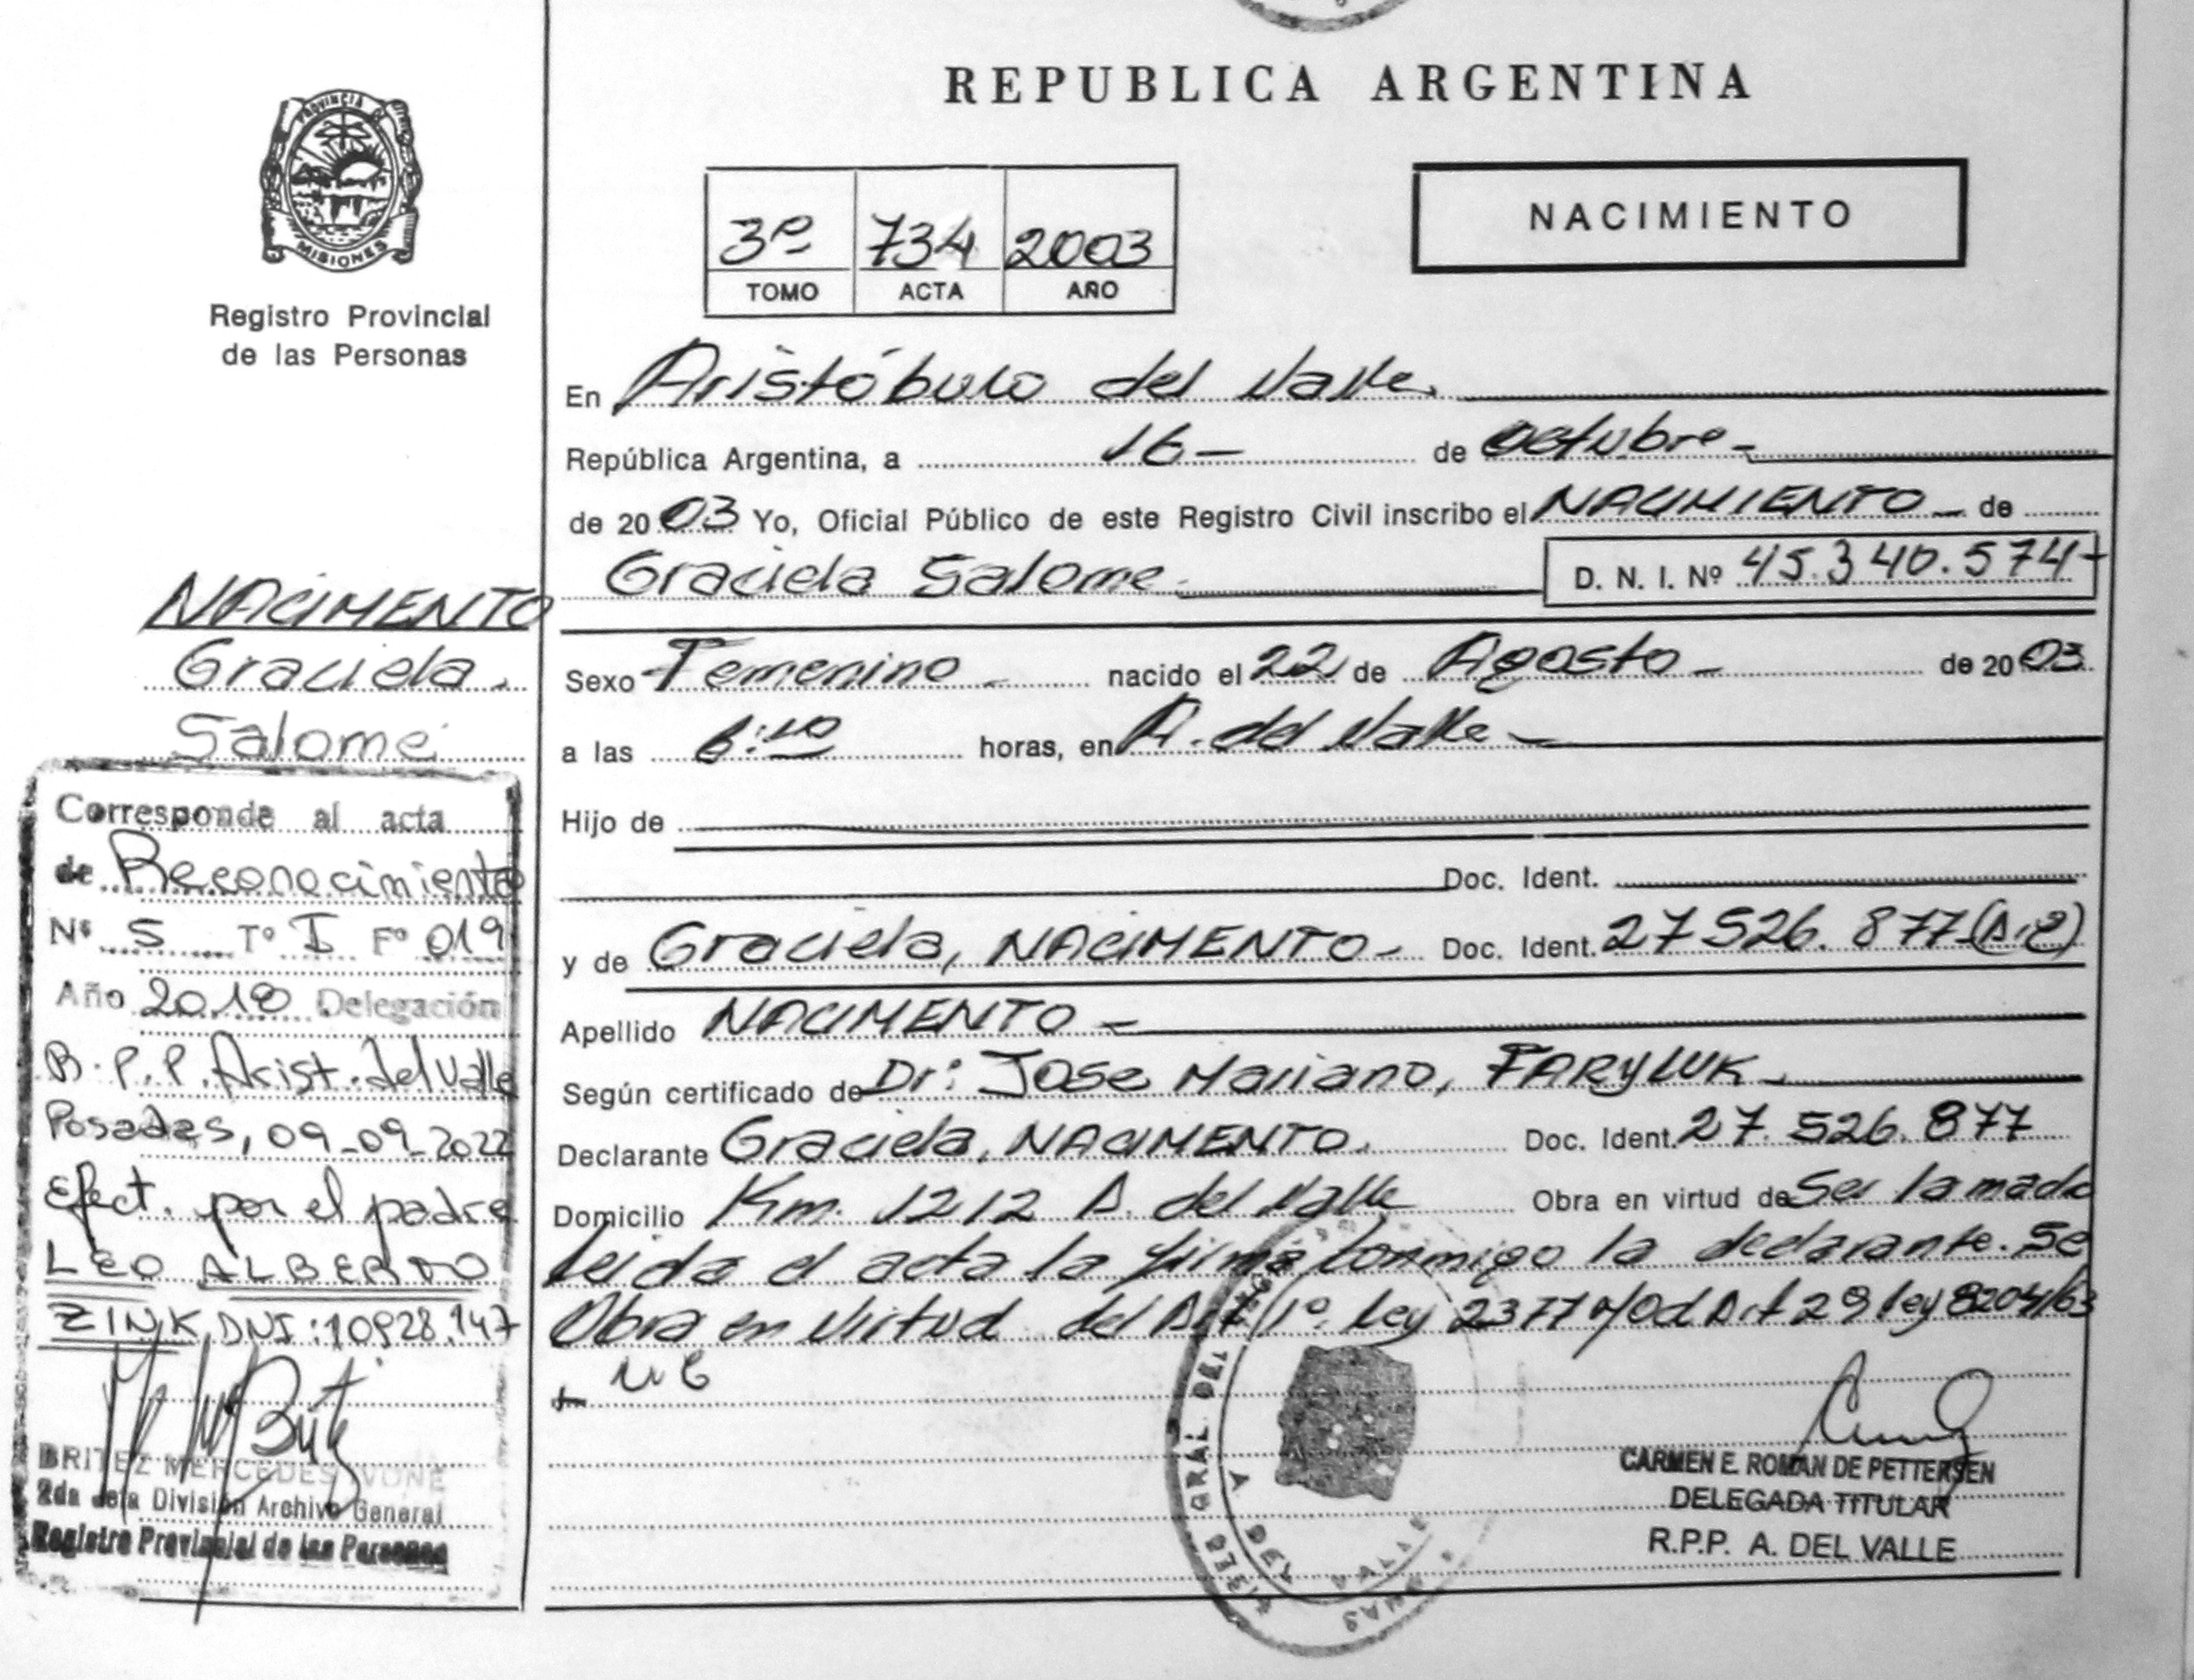 REPUBLICA ARGENTINA
PROVINCIA DE
MISIONES
Registro Provincial
de las Personas
3º 734 2003
TOMO ACTA AÑO
NACIMIENTO
En Aristóbulo del Valle.
República Argentina, a 16- de octubre-
de 2003 Yo, Oficial Público de este Registro Civil inscribo el NACIMIENTO - de
Graciela Salome. D. N. I. Nº 45.340.574-
Sexo Femenino - nacido el 22 de Agosto - de 2003
a las 6:10 horas, en A. del Valle -
Hijo de
Doc. Ident.
y de Graciela, NACIMENTO- Doc. Ident. 27 526. 877
Apellido NACIMENTO -
Según certificado de Dr: Jose Mariano, TARYLUK -
Declarante Graciela, NACIMENTO. Doc. Ident. 27. 526. 877
Domicilio Km. 1212 A. del Valle Obra en virtud de Ser la madre
leida el acta la firma conmigo la declarante. Se
Obra en Virtud del Art 1º. ley 23774 Mod Art 29 ley 8204/63
CARMEN E. ROMAN DE PETTERSEN
DELEGADA TITULAR
R.P.P. A. DEL VALLE
NACIMENTO
Graciela.
Salome
Corresponde al acta
de Reconocimiento
Nº 5 Tº I Fº 019
Año 2018 Delegación
R.P.P. Arist. del Valle
Posadas, 09-09-2022
Efect. por el padre
LEO ALBERTO
ZINK, DNI: 10928.147
BRITEZ MERCEDES IVONE
2da de la División Archivo General
Registro Provincial de las Personas